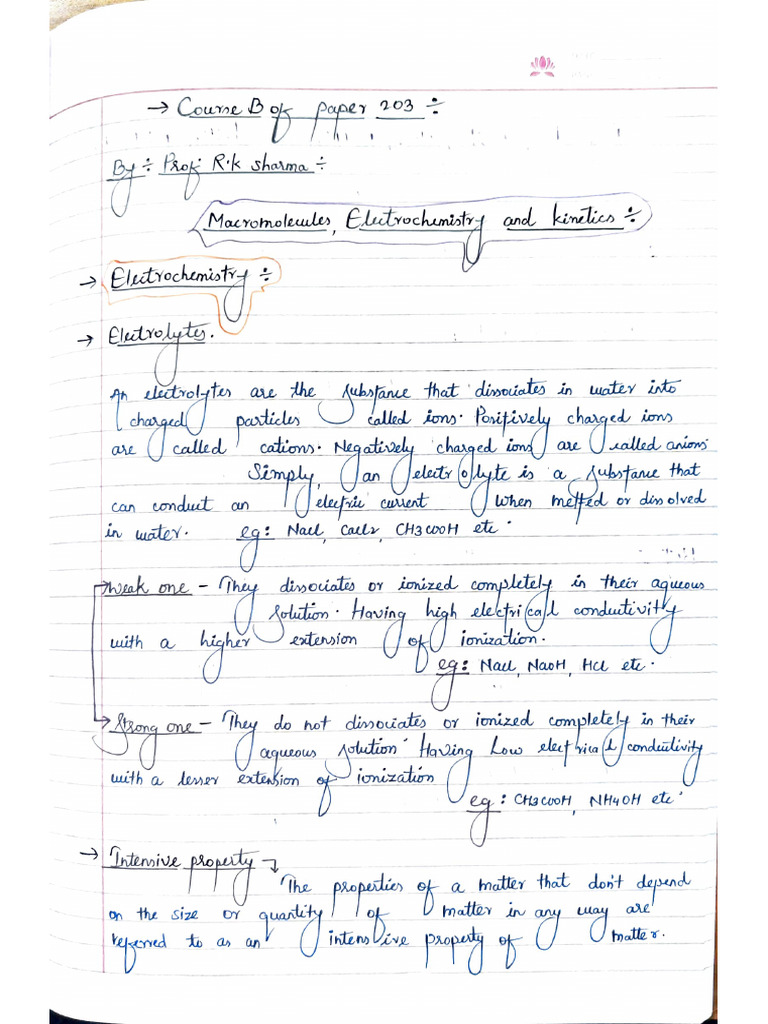 → Course B of paper 203 ÷
By ÷ Prof. R.k sharma ÷
Macromolecules, Electrochemistry and kinetics ÷
→ Electrochemistry ÷
→ Electrolytes.
An electrolytes are the substance that dissociates in water into
charged particles called ions. Positively charged ions
are called cations. Negatively charged ions are called anions.
Simply, an electrolyte is a substance that
can conduct an electric current when melted or dissolved
in water. eg: Nacl, Cacl2, CH3COOH etc.
Weak one - They dissociates or ionized completely in their aqueous
solution. Having high electrical conductivity
with a higher extension of ionization.
eg: Nacl, NaOH, HCl etc.
Strong one - They do not dissociates or ionized completely in their
aqueous solution. Having Low electrical conductivity
with a lesser extension of ionization
eg: CH3COOH, NH4OH etc.
→ Intensive property
The properties of a matter that don't depend
on the size or quantity of matter in any way are
referred to as an intensive property of matter.